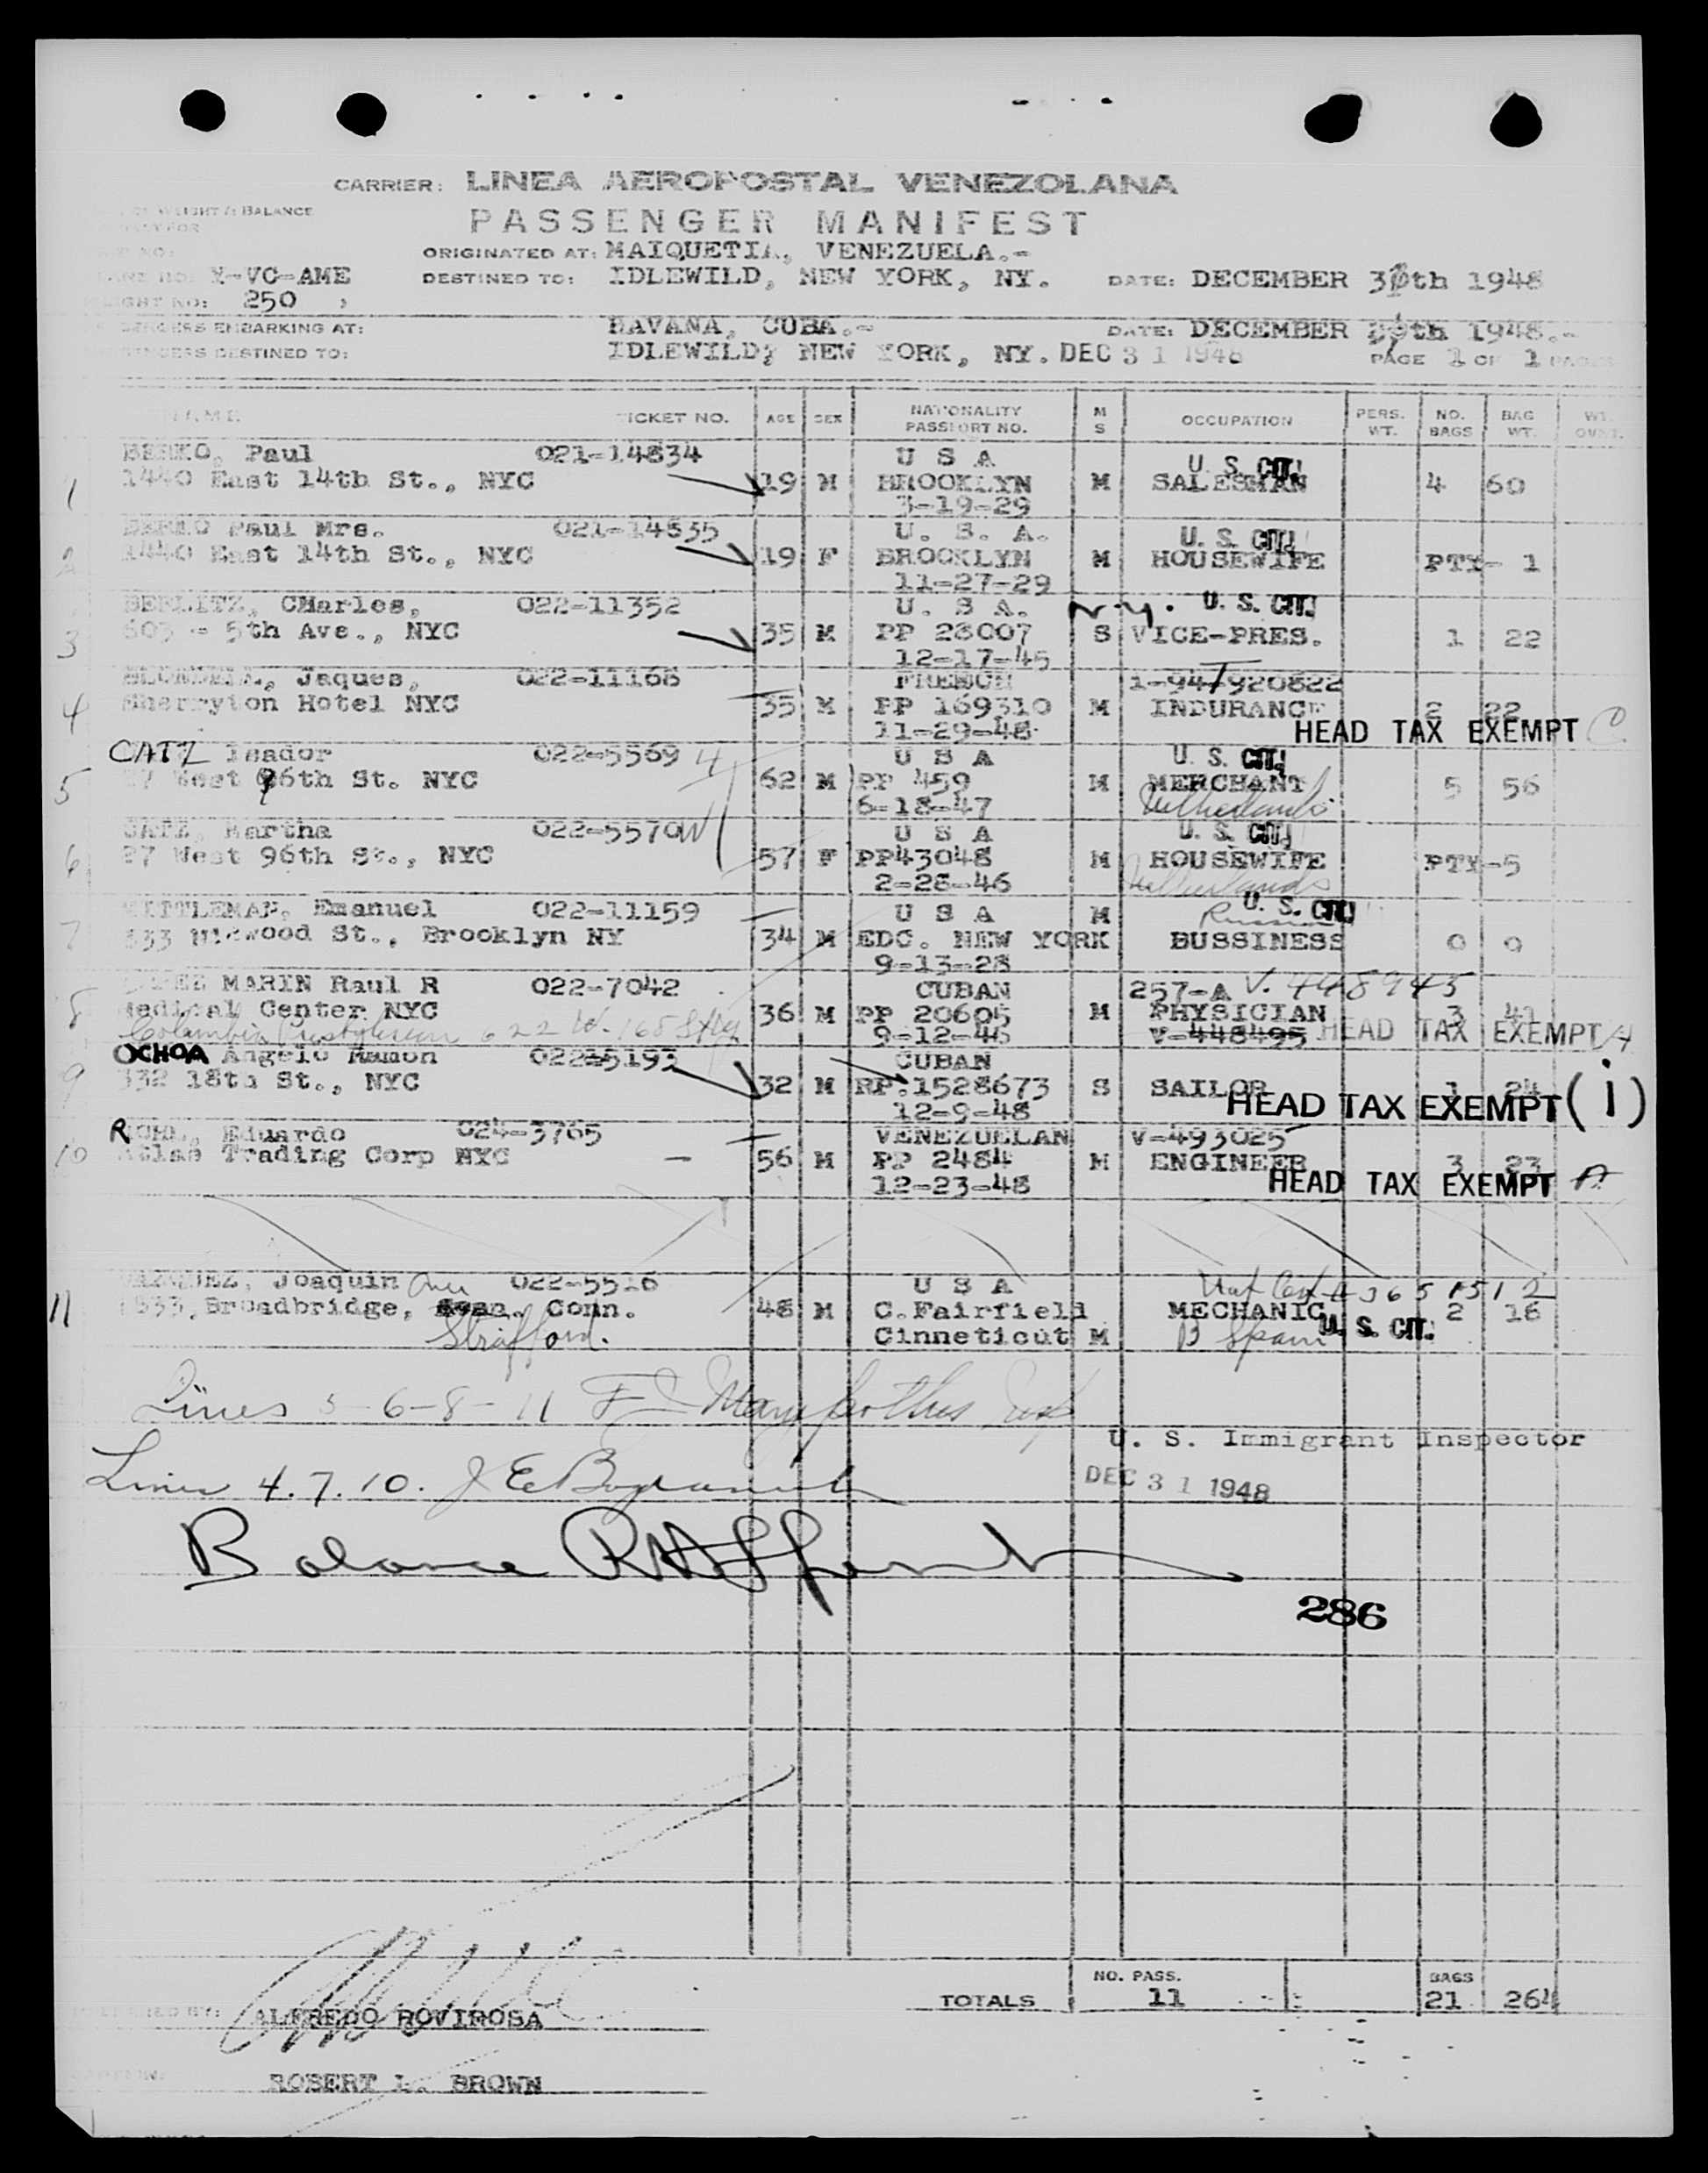 CARRIER: LINEA AEROPOSTAL VENEZOLANA
WEIGHT & BALANCE
PASSENGER MANIFEST
ORIGINATED AT: MAIQUETIA, VENEZUELA.-
Y-VC-AME DESTINED TO: IDLEWILD, NEW YORK, NY. DATE: DECEMBER 3th 1948
NO: 250
EMBARKING AT: HAVANA, CUBA.- DATE: DECEMBER th 1948.-
DESTINED TO: IDLEWILD, NEW YORK, NY. DEC 31 1948 PAGE 1 OF 1
NAME TICKET NO. AGE SEX NATIONALITY PASSPORT NO. M S OCCUPATION PERS. WT. NO. BAGS BAG WT. WT.
BERKO, Paul 021-14834 U S A U. S. CIT.
1 1440 East 14th St., NYC 19 M BROOKLYN M SALESMAN 4 60
3-19-29
BERKO Paul Mrs. 021-14835 U. S. A. U. S. CIT.
2 1440 East 14th St., NYC 19 F BROOKLYN M HOUSEWIFE PTY- 1
11-27-29
BERLITZ, CHarles, 022-11352 U. S A. N.Y. U. S. CIT.
3 603 - 5th Ave., NYC 35 M PP 28007 S VICE-PRES. 1 22
12-17-45
Jaques, 022-11168 FRENCH 1-94T920822
4 Sherryton Hotel NYC 35 M PP 169310 M INDURANCE 2 22
11-29-48 HEAD TAX EXEMPT C
CATZ Isador 022-5569 U S A U. S. CIT.
5 27 West 96th St. NYC 62 M PP 459 M MERCHANT 5 56
6-18-47 Netherlands
CATZ, Martha 022-5570 U S A U. S. CIT.
6 27 West 96th St., NYC 57 F PP43048 M HOUSEWIFE PTY-5
2-28-46 Netherlands
Emanuel 022-11159 U S A M Russia U. S. CIT.
7 333 Midwood St., Brooklyn NY 34 M EDC. NEW YORK BUSSINESS 0 0
9-13-28
MARIN Raul R 022-7042 CUBAN 257-A V. 448945
8 Medical Center NYC 36 M PP 20605 M PHYSICIAN 3 41
Columbia Presbyterian 622 W. 168 St NY 9-12-46 V-448495 HEAD TAX EXEMPT A
OCHOA Angelo Ramon 022-5193 CUBAN
9 332 18th St., NYC 32 M RP.1528673 S SAILOR 1 24
12-9-48 HEAD TAX EXEMPT (i)
ROHL, Eduardo 024-3765 VENEZUELAN V-493025
10 Atlas Trading Corp NYC 56 M PP 2484 M ENGINEER 3 23
12-23-48 HEAD TAX EXEMPT A
VAZQUEZ, Joaquin 022-5516 U S A Nat Cert # 3651512
11 1533, Broadbridge, Ave Conn. 48 M C.Fairfield MECHANIC 2 16
Stratford. Cinneticut M B Spain U. S. CIT.
Lines 5-6-8-11
U. S. Immigrant Inspector
Lines 4.7.10.
DEC 31 1948
Balance
286
TOTALS NO. PASS. 11 BAGS 21 264
ALFREDO ROVIROSA
ROBERT L. BROWN